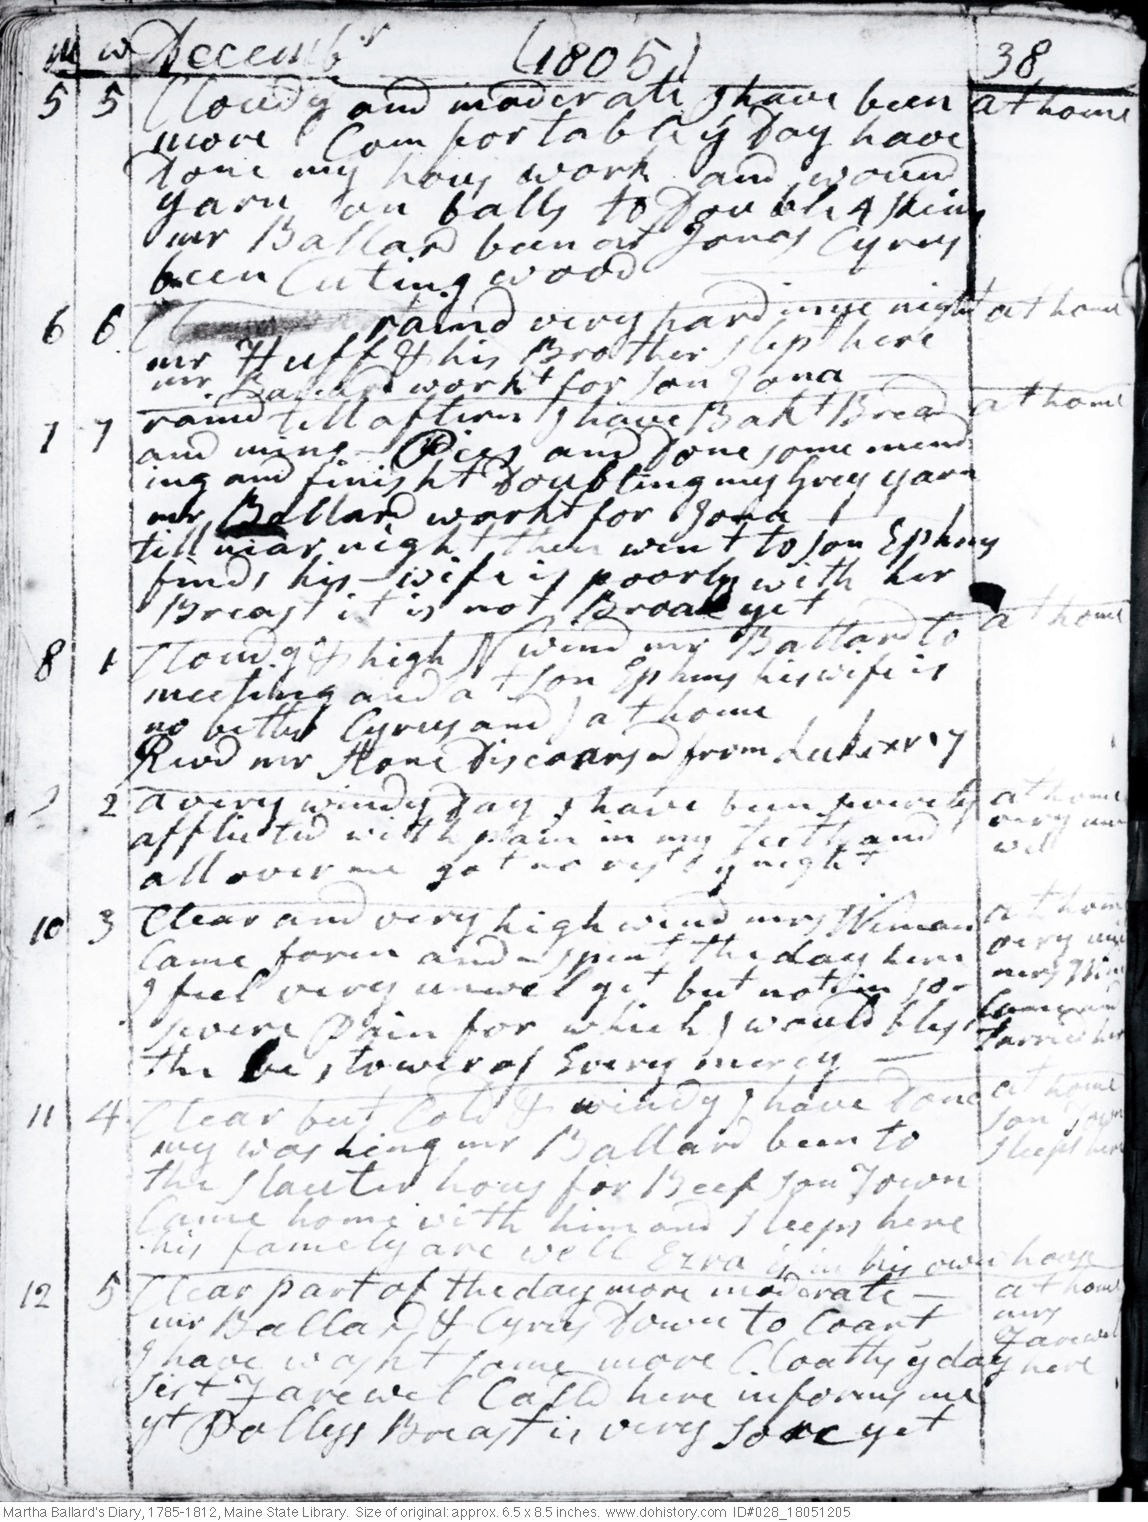 m w Decembr (1805) 38
5 5 Cloudy and moderate I have been at home
more Comfortable ys Day have
Done my hous work and wound
yarn on balls to Double 4 skins
mr Ballard been at Jonas Cyrus
been Cuting wood
6 6 raind very hard in ye night at home
mr Huff & his Brother slep here
mr Ballard workt for son Jona
7 7 raind till aftern I have Bakt Bread at home
and mins Pies and Done some mend
ing and finisht Doubling my Grey yarn
mr Ballard workt for Jona
till near night then went to son Ephms
finds his wife is poorly with her
Breast it is not Broak yet
8 1 Cloudy & high N wind mr Ballard to at home
meeting and at son Ephms his wife is
no better Cyrus and I at home
Read mr Stone Discoars from Luke
2 a very windy Day I have been severely at home
afflicted with pain in my teeth and very un
all over me got no rest ys night well
10 3 Clear and very high wind mrs Wiman at home
Came foren and spent the day here very un
I feel very unwel yet but not in so mrs
severe Pain for which I would bless Came and
the bestower of Every mercy tarried her
11 4 Clear but Cold & windy I have Done at home
my washing mr Ballard been to son Town
the slauter hous for Beef son Town sleeps here
Came home with him and sleeps here
his famely are well Ezra is in his own house
12 5 Clear part of the day more moderate at home
mr Ballard & Cyrus Down to Coart mrs
I have washt some more Cloaths ys day Farewel here
sist Farewel Calld here informs me
yt Pollys Breast is very sore yet
Martha Ballard's Diary, 1785-1812, Maine State Library. Size of original: approx. 6.5 x 8.5 inches. www.dohistory.com ID#028_18051205